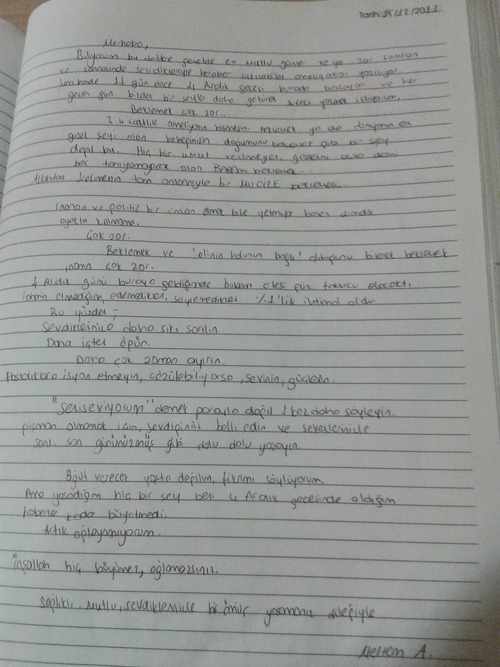 Tarih 15/12/2011.
Merhaba,
Biliyorum bu deftere genelde en mutlu günler veya zor sanılan
ve sonrasında sevdikleriyle beraber ameliyatlar yazılıyor
11 gün önce 4 Aralık gecesi burada başlayan ve her
geçen gün bizden bir şeyler daha götüren süreci yazmak istiyorum.
Beklemek çok zor..
3 4 saatlik ameliyatın bitmesini beklemek ya da dünyanın en
güzel şeyi olan bebeğinin doğumunu beklemek gibi bir şey
değil bu. Hiç bir umut verilmeyen, gözlerini açsa dahi
beni tanıyamayacak olan Babamı beklemek.
Allahtan kelimenin tam anlamıyla bir MUCİZE beklemek.
İnanan ve pozitif bir insan olmak bile yetmiyor bazen
ayakta kalmama.
Çok zor.
Beklemek ve 'elinin kolunun bağlı' olduğunu bilerek beklemek
inanın çok zor.
4 Aralık günü buraya geldiğimde babam ertesi gün taburcu olacaktı
tahmin etmediğim, edemedikleri, söylemedikleri %1'lik ihtimal oldu
Bu yüzden;
Sevdiklerinize daha sıkı sarılın.
Daha içten öpün.
Daha çok zaman ayırın.
Hastalıklara isyan etmeyin, çözülebiliyorsa, sevinin, gülsenin.
"Seni seviyorum" demek parayla değil 1 kez daha söyleyin.
pişman olmamak için, sevdiğinizi belli edin ve sevdiklerinizle
sanki son gününüzmüş gibi dolu dolu yaşayın.
Öğüt verecek yaşta değilim, fikrimi söylüyorum.
Ama yaşadığım hiç bir şey beni 4 Aralık gecesinde aldığım
haber kadar büyütmedi.
Artık ağlayamıyorum.
İnşallah hiç büyümez, ağlamazsınız.
Sağlıklı, mutlu, sevdiklerinizle bir ömür yaşamanız dileğiyle
Meltem A.